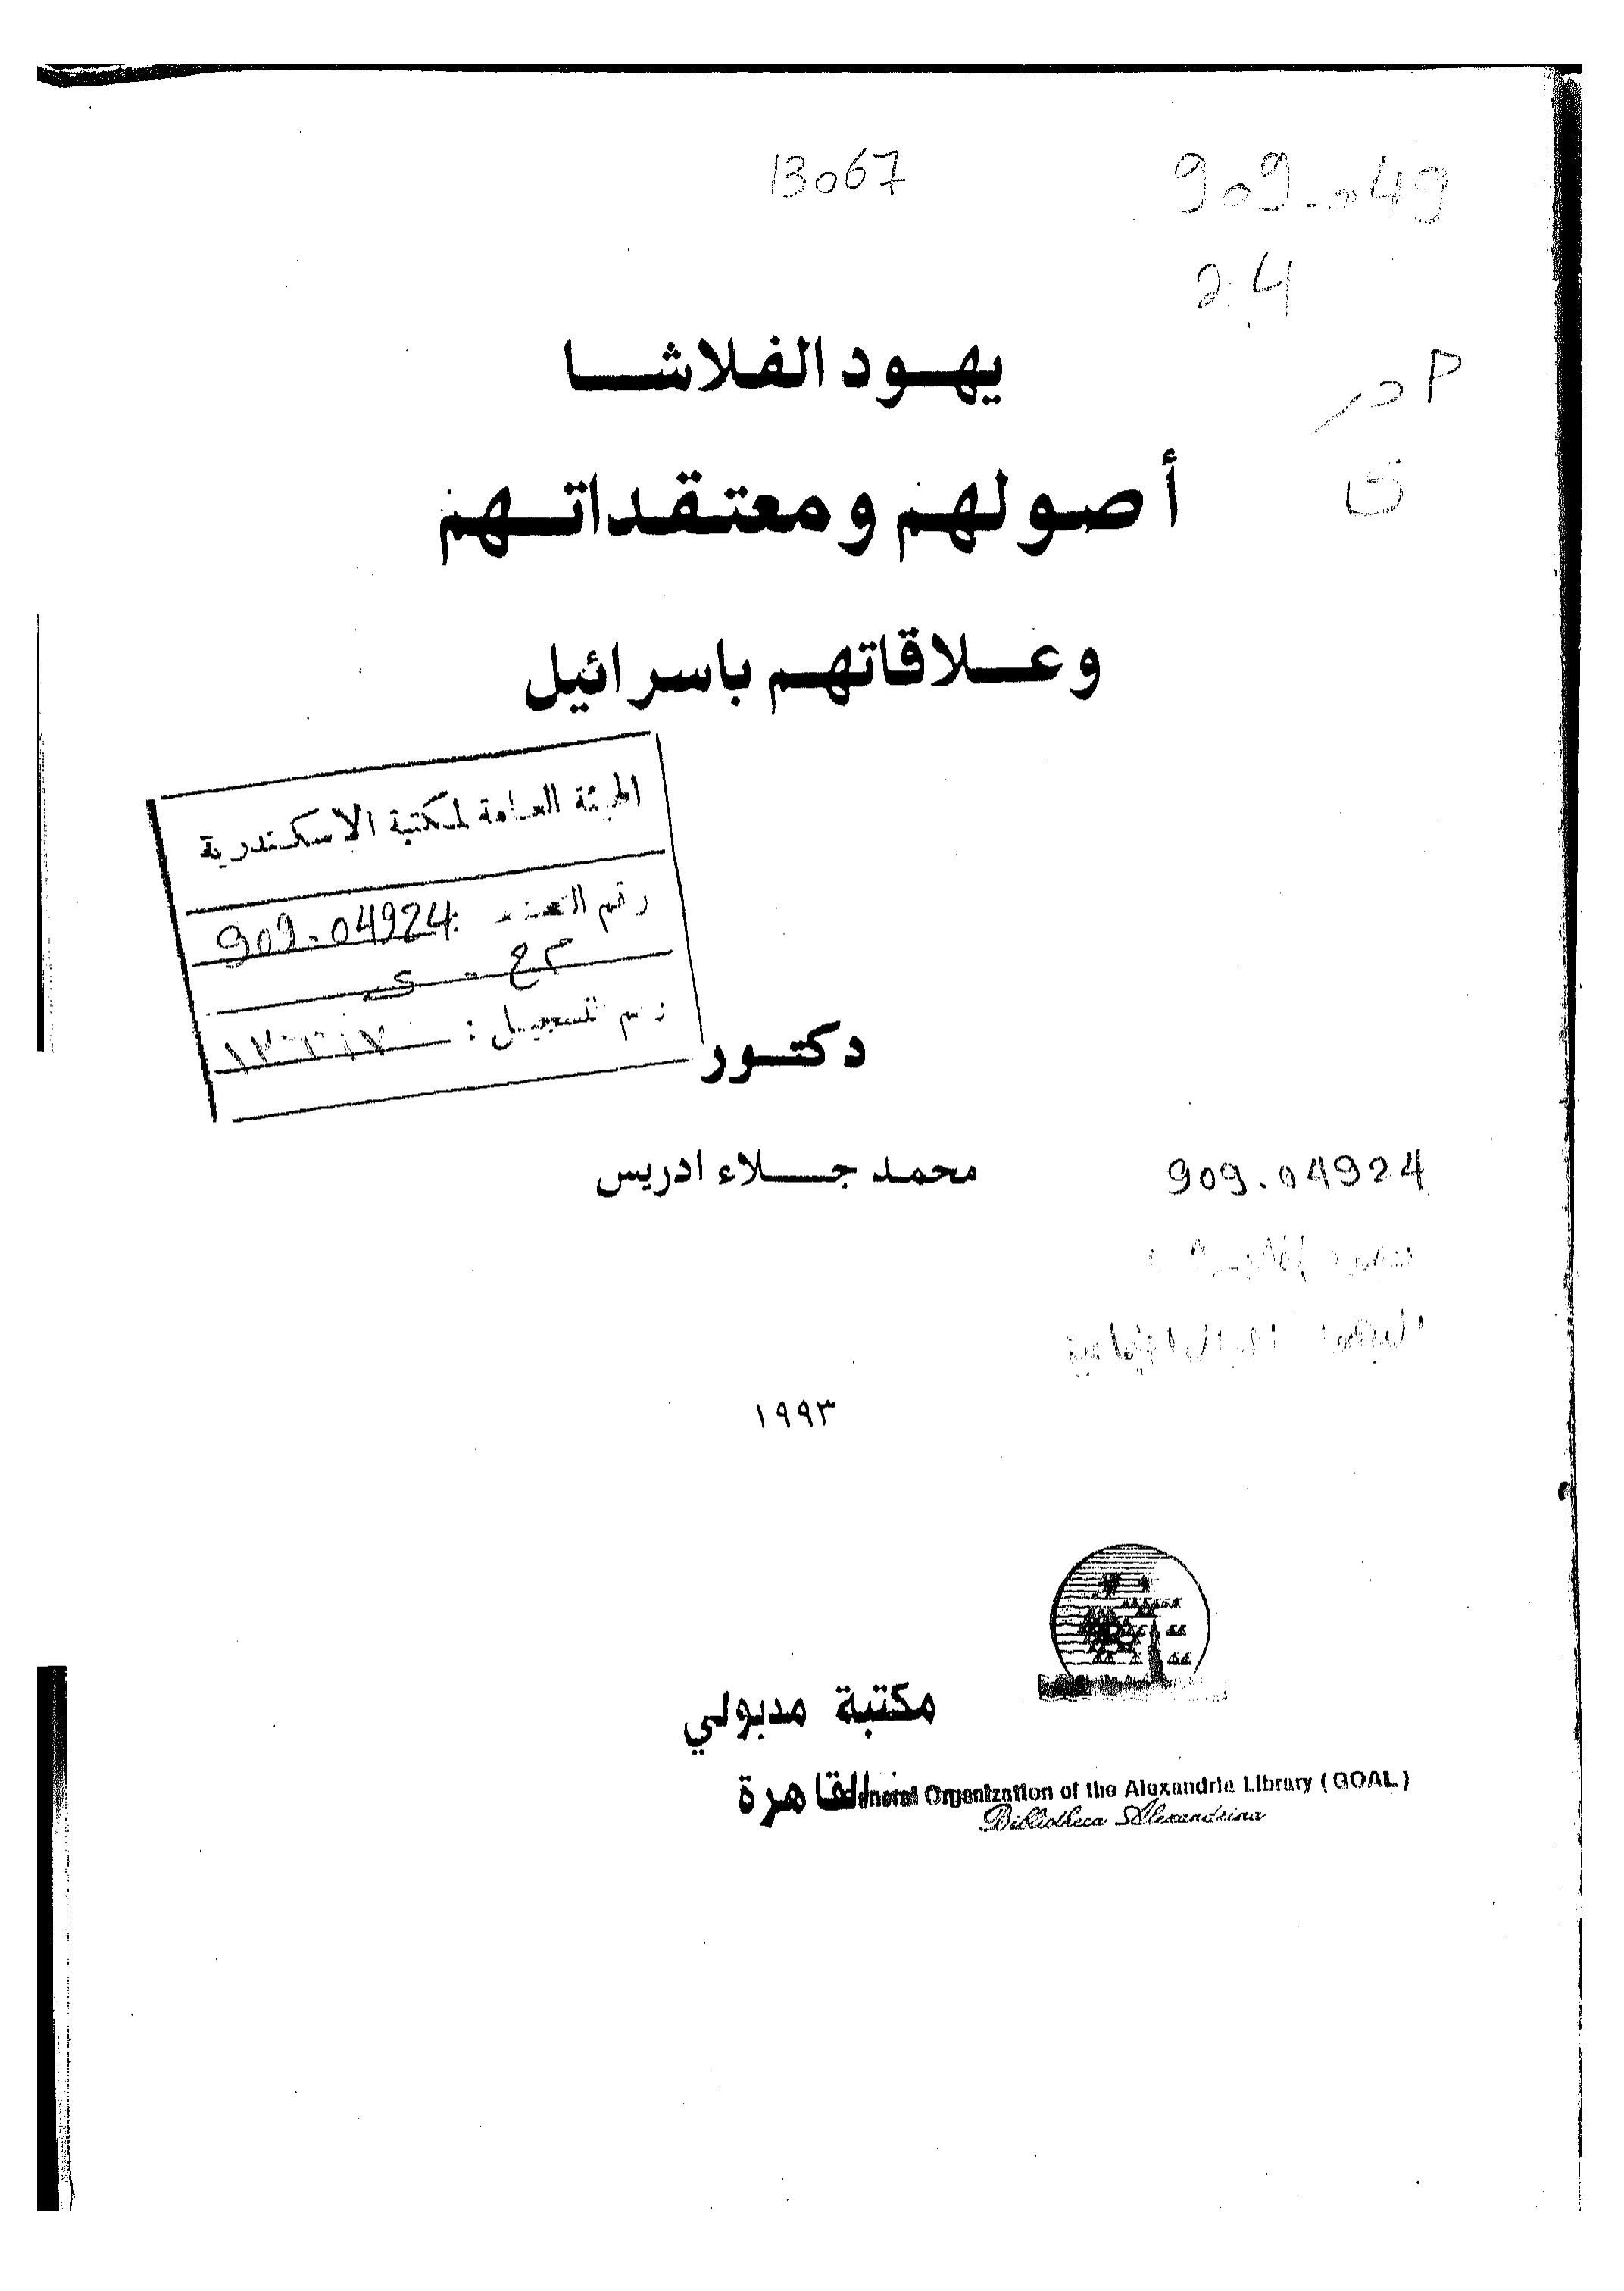 13067
909.049
24
يهود الفلاشا
أصولهم ومعتقداتهم
وعلاقاتهم باسرائيل
الهيئة العامة لمكتبة الاسكندرية
رقم 909.04924
رقم التسجيل :
دكتور
محمد جلاء ادريس
909.04924
١٩٩٣
مكتبة مدبولي
القاهرة
General Organization of the Alexandria Library (GOAL)
Bibliotheca Alexandrina